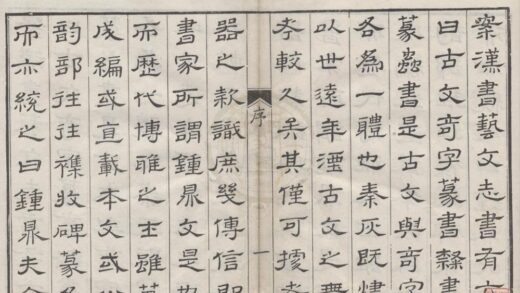 案漢書藝文志書有六
曰古文奇字篆書隸書
篆蟲書是古文與奇字
各為一體也秦灰既
以世遠年湮古文之無
考較久矣其僅可據者
序
一
器之款識庶幾傳信即
書家所謂鍾鼎文是也
而歷代博雅之士雖其
成編或直載本文或
韻部往往襍收碑篆
而亦統之曰鍾鼎夫